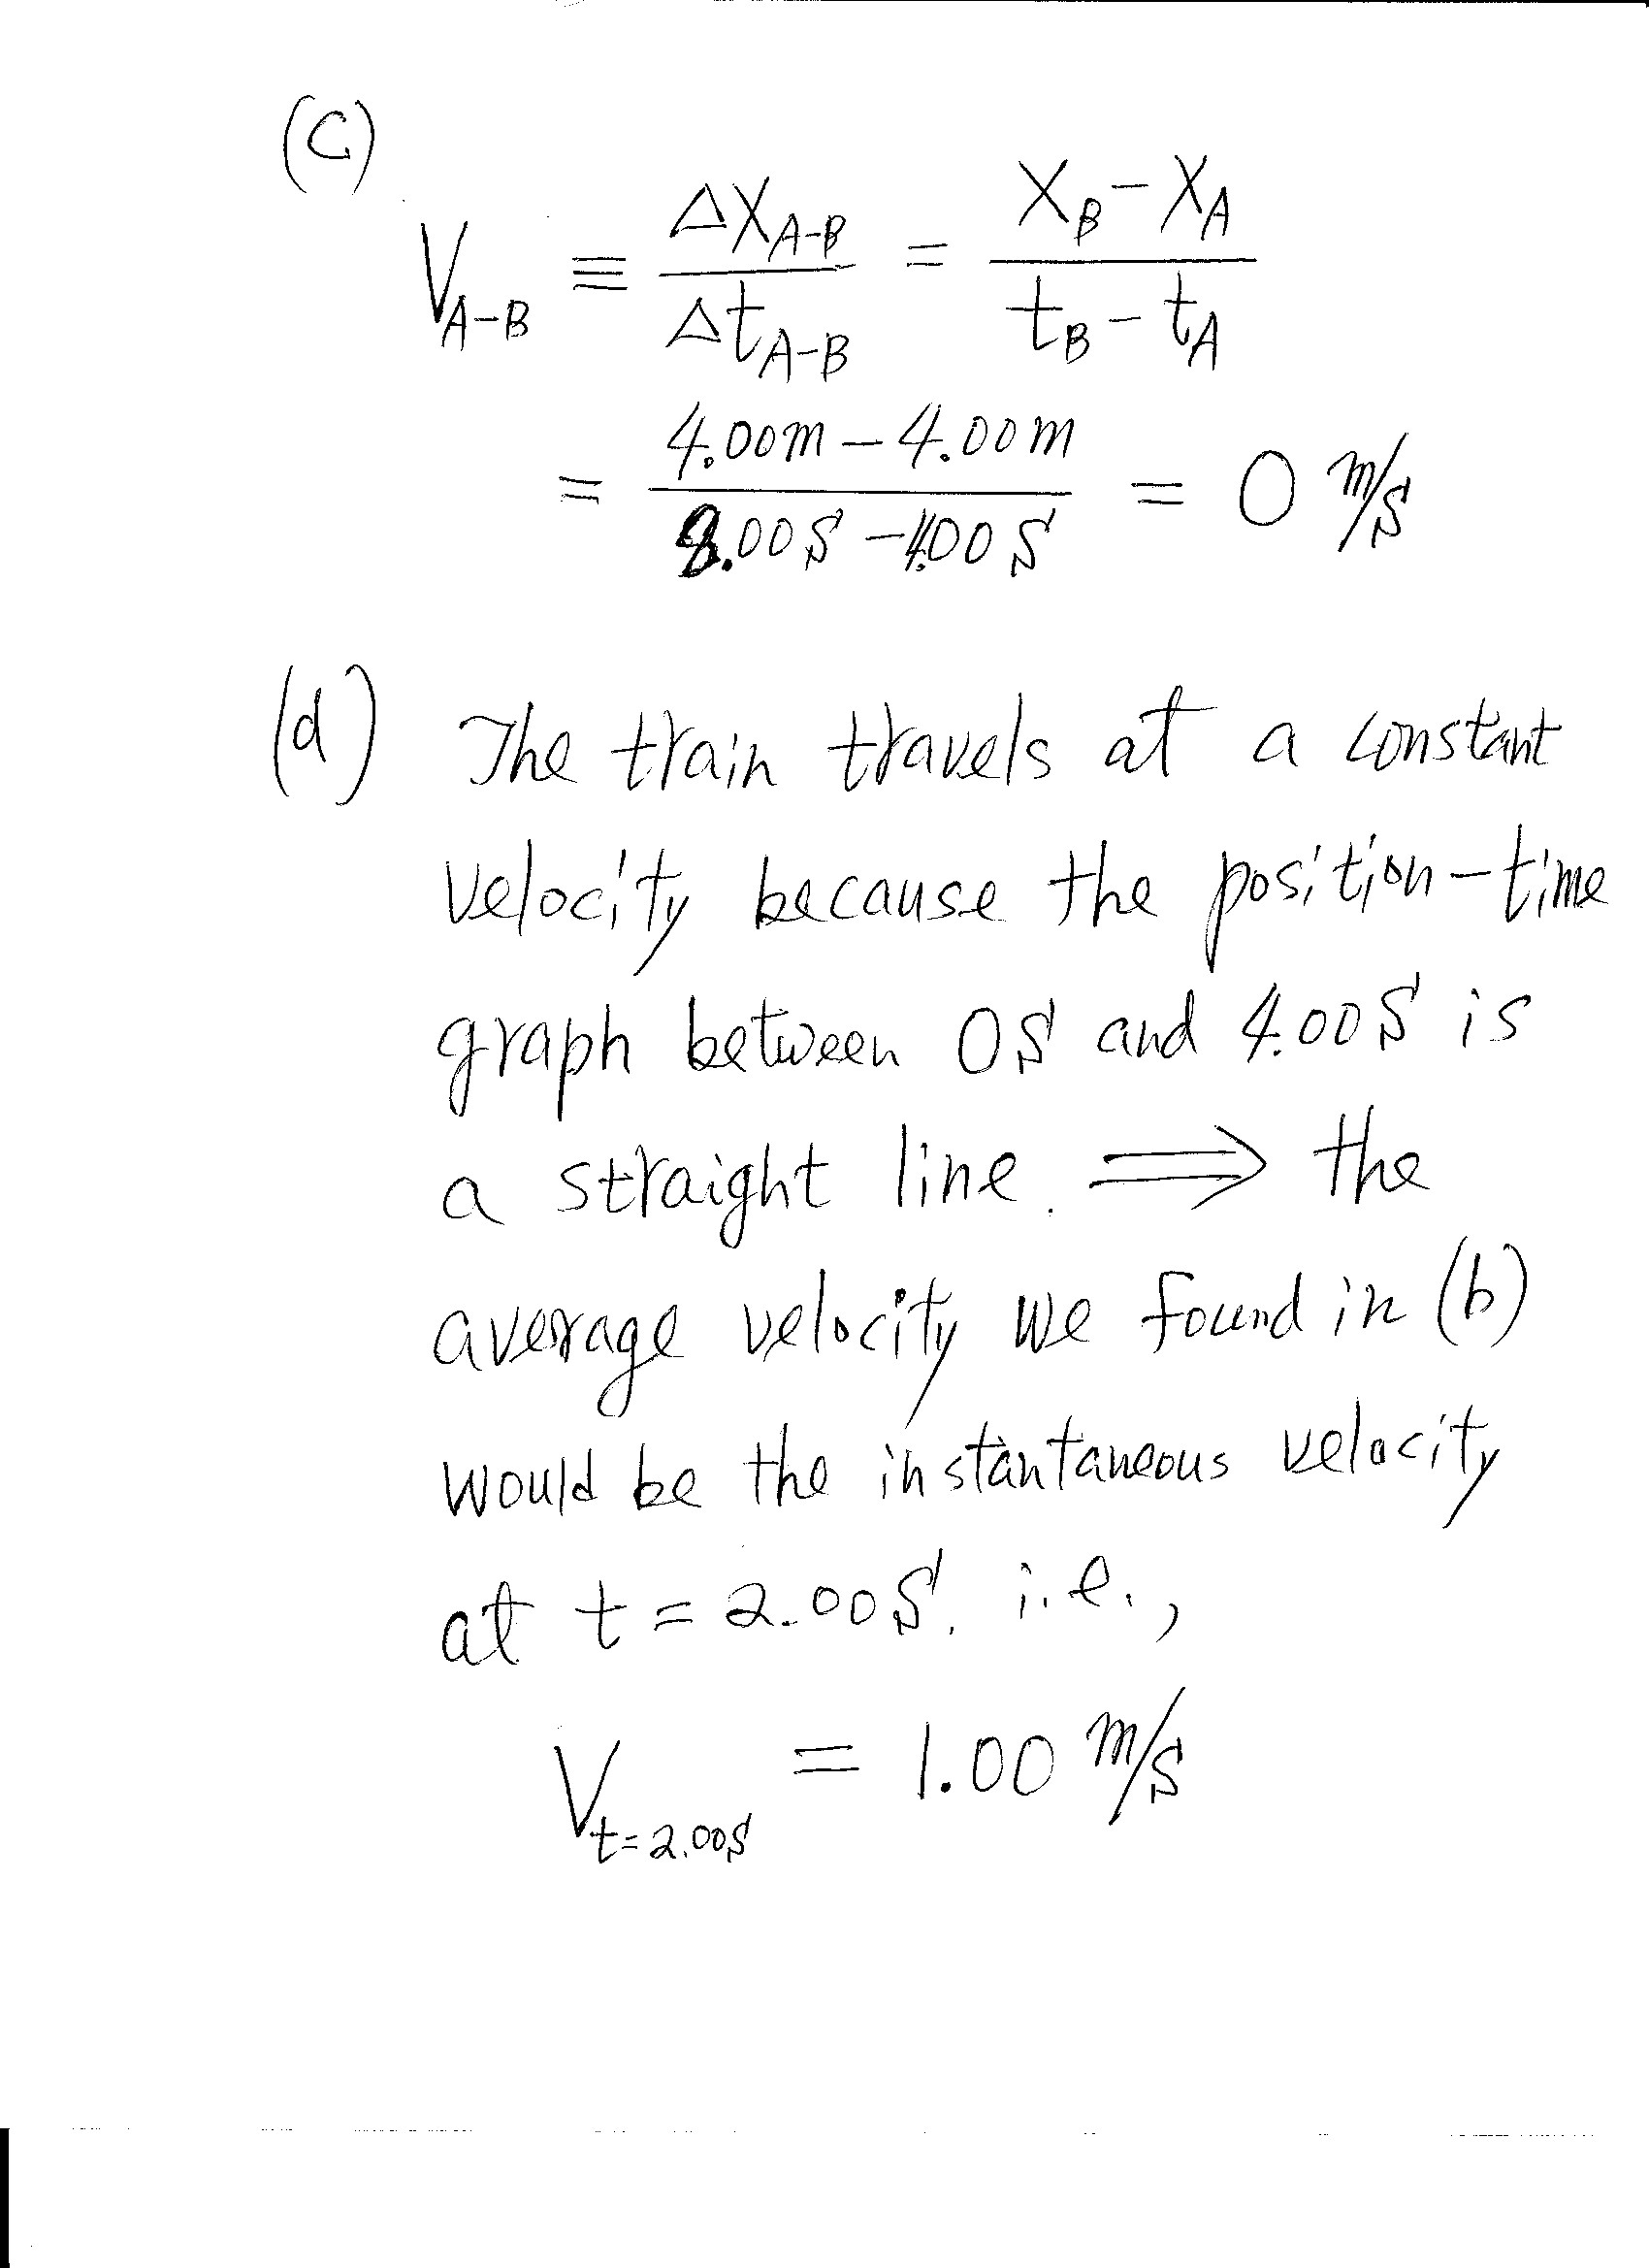 (c)
V_{A-B} ≡ ΔX_{A-B} / Δt_{A-B} = (X_B - X_A) / (t_B - t_A)
= (4.00m - 4.00m) / (8.00s - 4.00s) = 0 m/s
(d) The train travels at a constant
velocity because the position-time
graph between 0s and 4.00s is
a straight line. ⟹ the
average velocity we found in (b)
would be the instantaneous velocity
at t = 2.00s. i.e.,
V_{t=2.00s} = 1.00 m/s